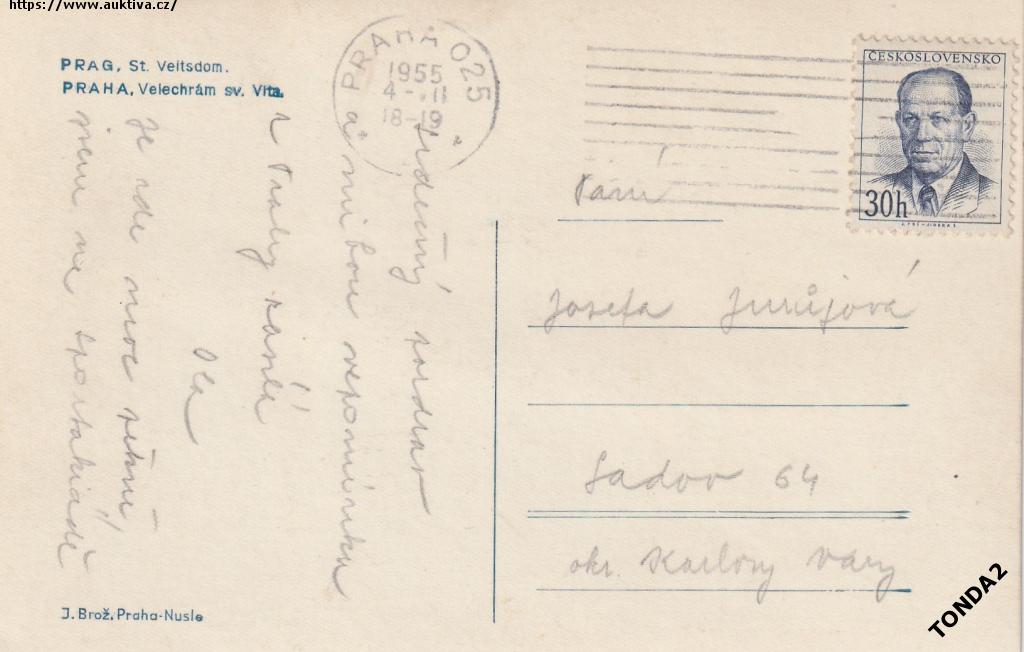 https://www.auktiva.cz/
PRAG, St. Veitsdom.
PRAHA, Velechrám sv. Víta.
PRAHA 025
1955
4-.VII
18-19
a
ČESKOSLOVENSKO
30h
Srdečný pozdrav
a milou vzpomínku
z Prahy zasílá
Ola
Je zde moc
jsem na spartakiádě
Paní
Josefa
Sadov 64
okr. Karlovy Vary
J. Brož, Praha-Nusle
TONDA2